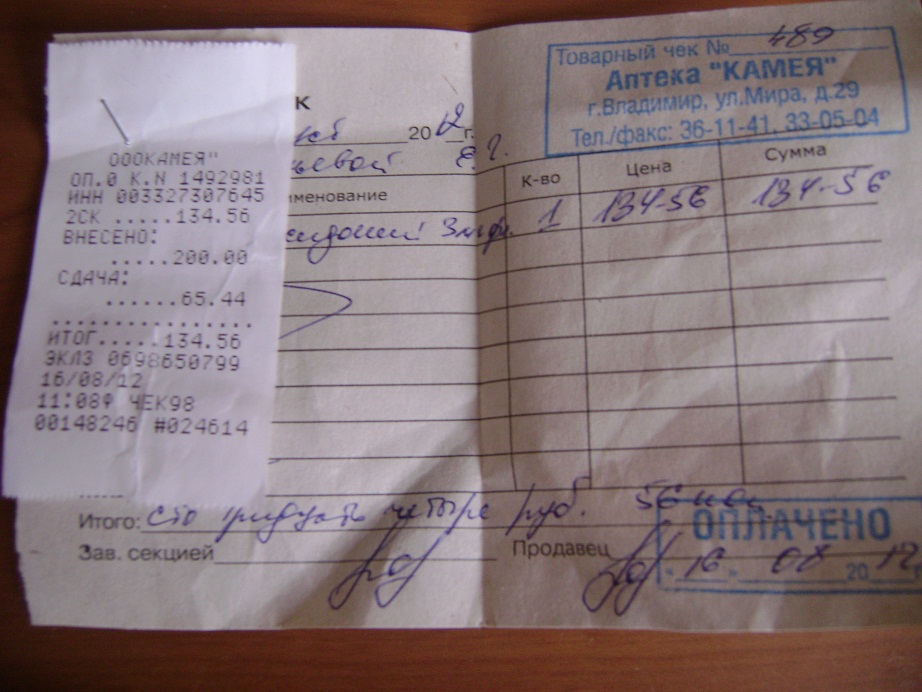 ОООКАМЕЯ"
ОП.0 К.N 1492981
ИНН 003327307645
2СК .....134.56
ВНЕСЕНО:
.....200.00
СДАЧА:
......65.44
................
ИТОГ.....134.56
ЭКЛЗ 0698650799
16/08/12
11:08 ЧЕК98
00148246 #024614
Товарный чек № 489
Аптека "КАМЕЯ"
г.Владимир, ул.Мира, д.29
Тел./факс: 36-11-41, 33-05-04
к
2012г.
ьевой Е.Г.
именование К-во Цена Сумма
1 134-56 134-56
Итого: сто тридцать четыре руб. 56 коп
Зав. секцией Продавец
ОПЛАЧЕНО
"16" 08 2012